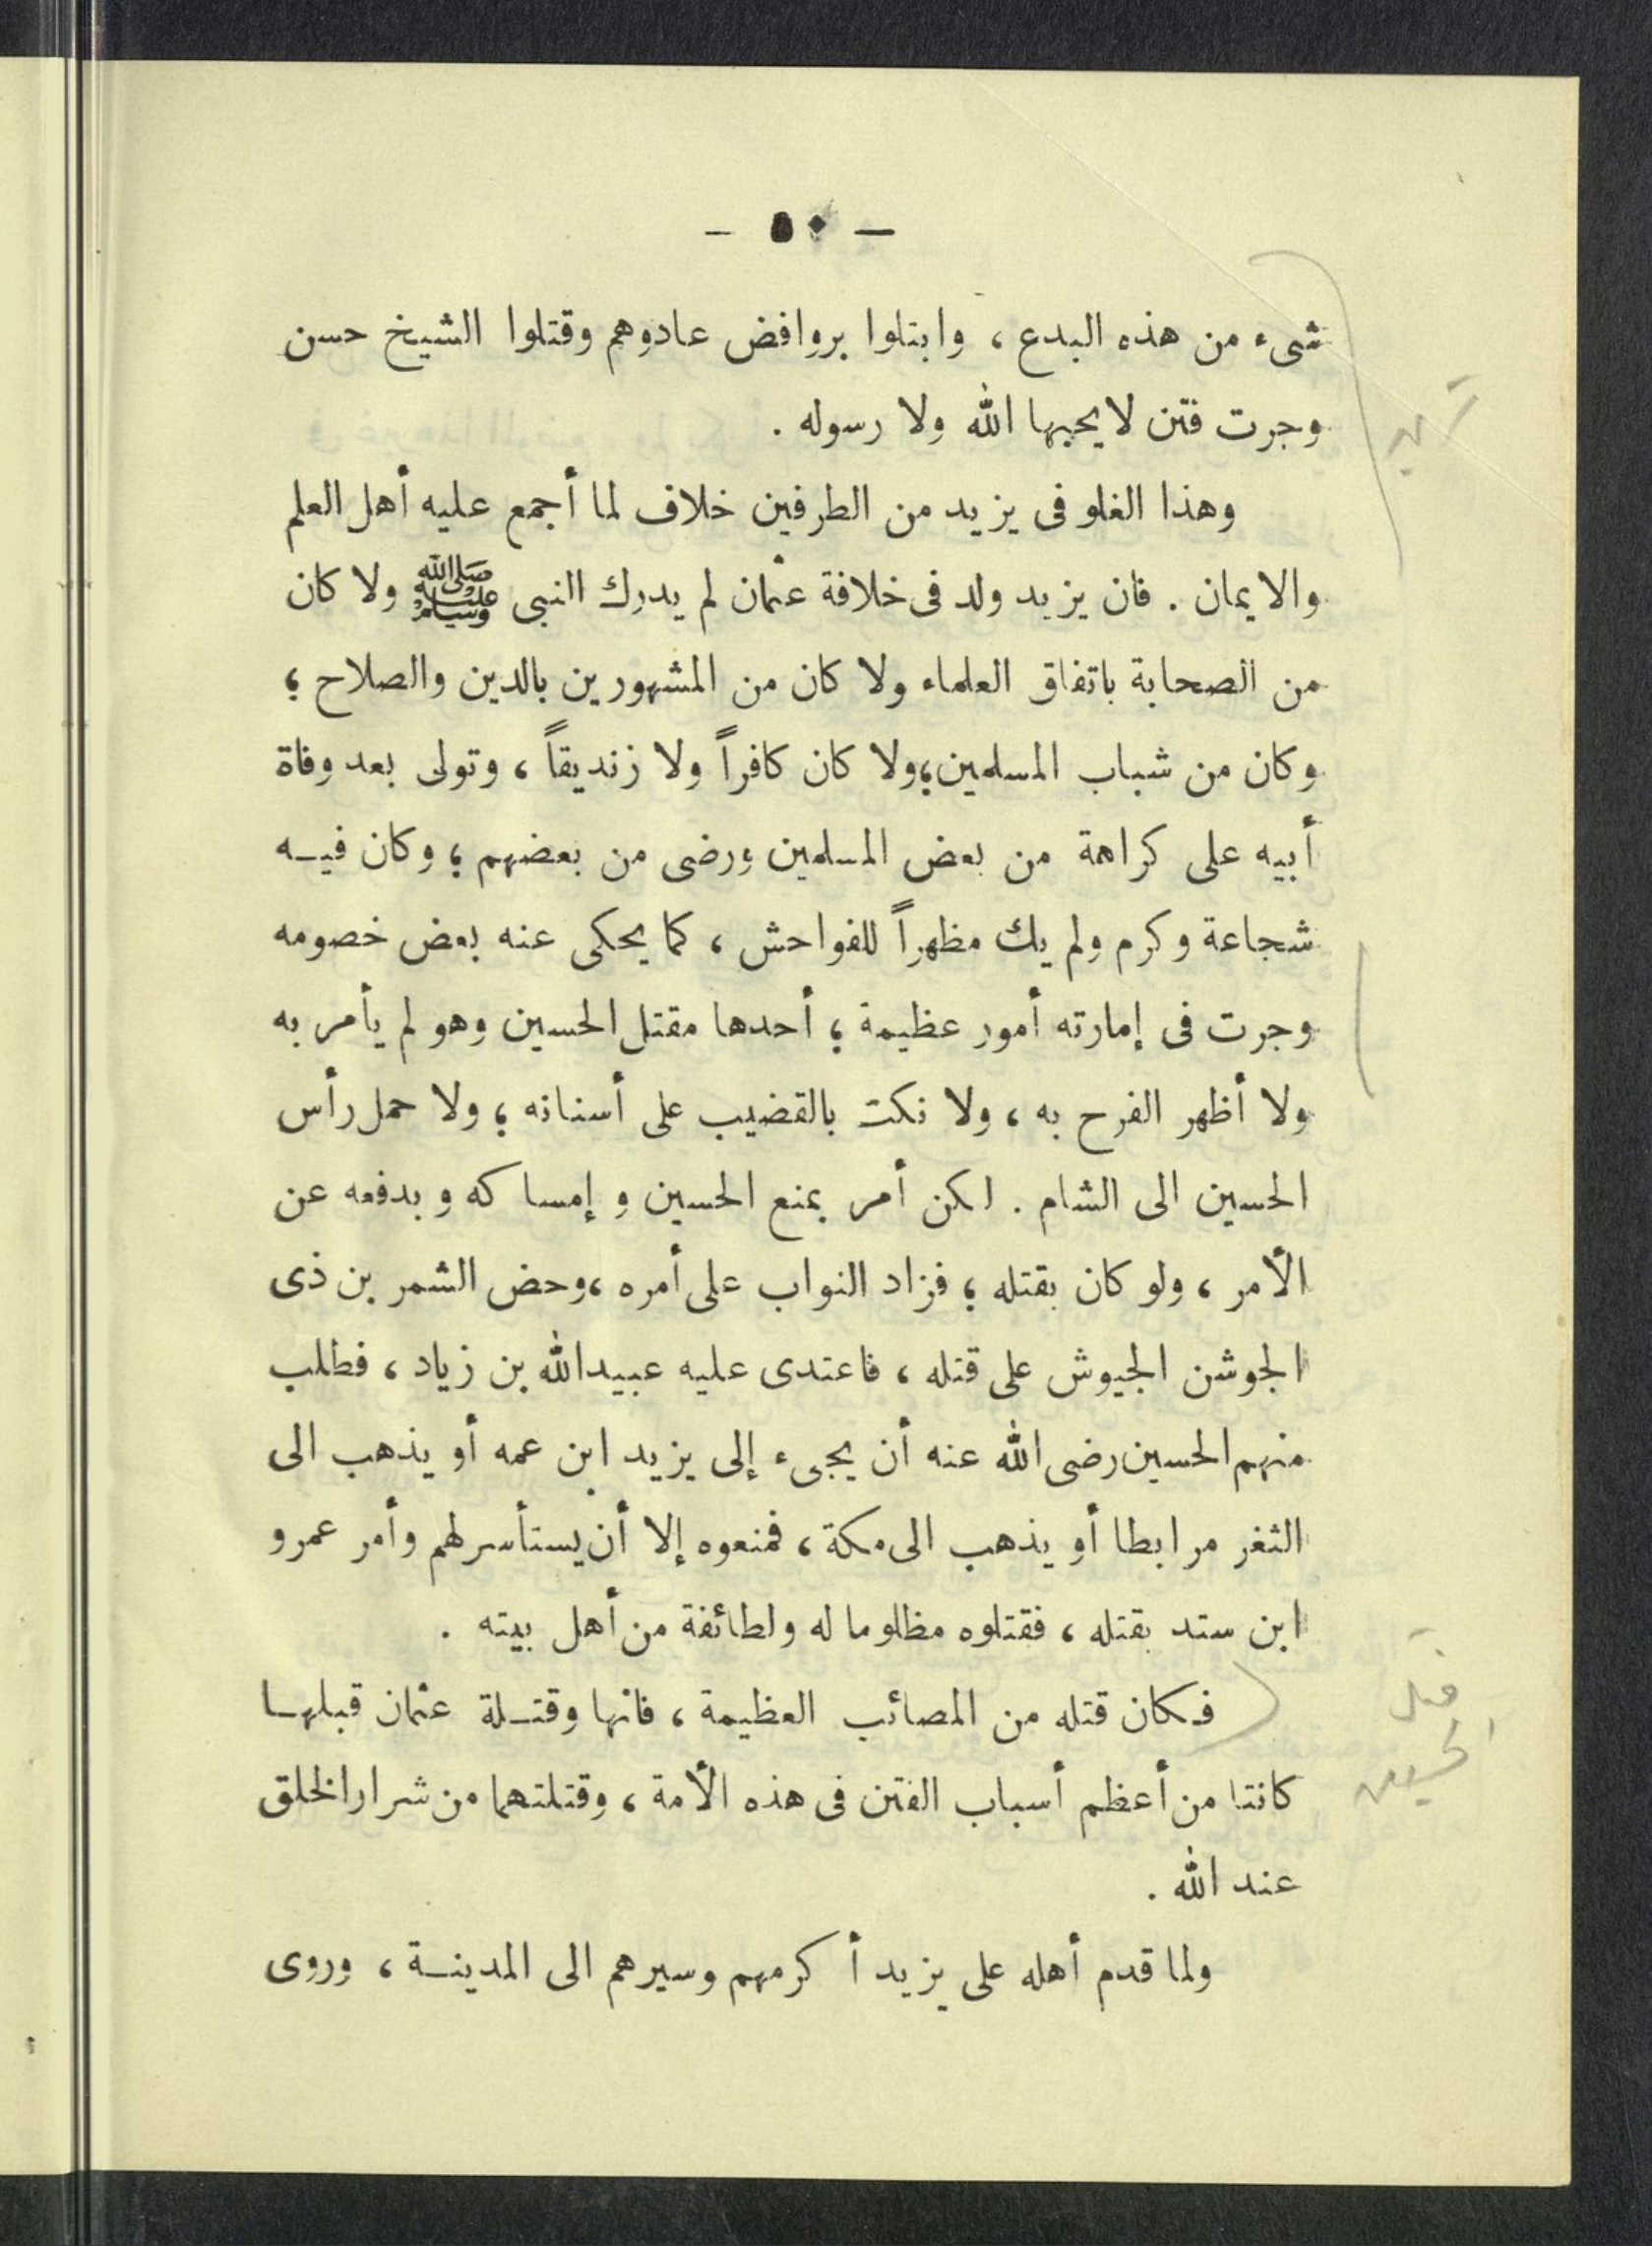 — ٥٠ —
شىء من هذه البدع ، وابتلوا بروافض عادوهم وقتلوا الشيخ حسن
وجرت فتن لا يحبها الله ولا رسوله .
وهذا الغلو فى يزيد من الطرفين خلاف لما أجمع عليه أهل العلم
والايمان . فان يزيد ولد فى خلافة عثمان لم يدرك النبى ﷺ ولا كان
من الصحابة باتفاق العلماء ولا كان من المشهورين بالدين والصلاح ؛
وكان من شباب المسلمين؛ولا كان كافراً ولا زنديقاً ، وتولى بعد وفاة
أبيه على كراهة من بعض المسلمين ورضى من بعضهم ؛ وكان فيـه
شجاعة وكرم ولم يك مظهراً للفواحش ، كما يحكى عنه بعض خصومه
وجرت فى إمارته أمور عظيمة ؛ أحدها مقتل الحسين وهو لم يأمر به
ولا أظهر الفرح به ، ولا نكت بالقضيب على أسنانه ؛ ولا حمل رأس
الحسين الى الشام . لكن أمر بمنع الحسين و إمساكه و بدفعه عن
الأمر ، ولو كان بقتله ؛ فزاد النواب على أمره ،وحض الشمر بن ذى
الجوشن الجيوش على قتله ، فاعتدى عليه عبيدالله بن زياد ، فطلب
منهم الحسين رضى الله عنه أن يجىء إلى يزيد ابن عمه أو يذهب الى
الثغر مرابطا أو يذهب الى مكة ، فمنعوه إلا أن يستأسر لهم وأمر عمرو
ابن ستد بقتله ، فقتلوه مظلوما له ولطائفة من أهل بيته .
فـكان قتله من المصائب العظيمة ، فانها وقتـلة عثمان قبلهـا
كانتا من أعظم أسباب الفتن فى هذه الأمة ، وقتلتهما من شرار الخلق
عند الله .
ولما قدم أهله على يزيد أكرمهم وسيرهم الى المدينـة ، وروى
قتل
الحسين